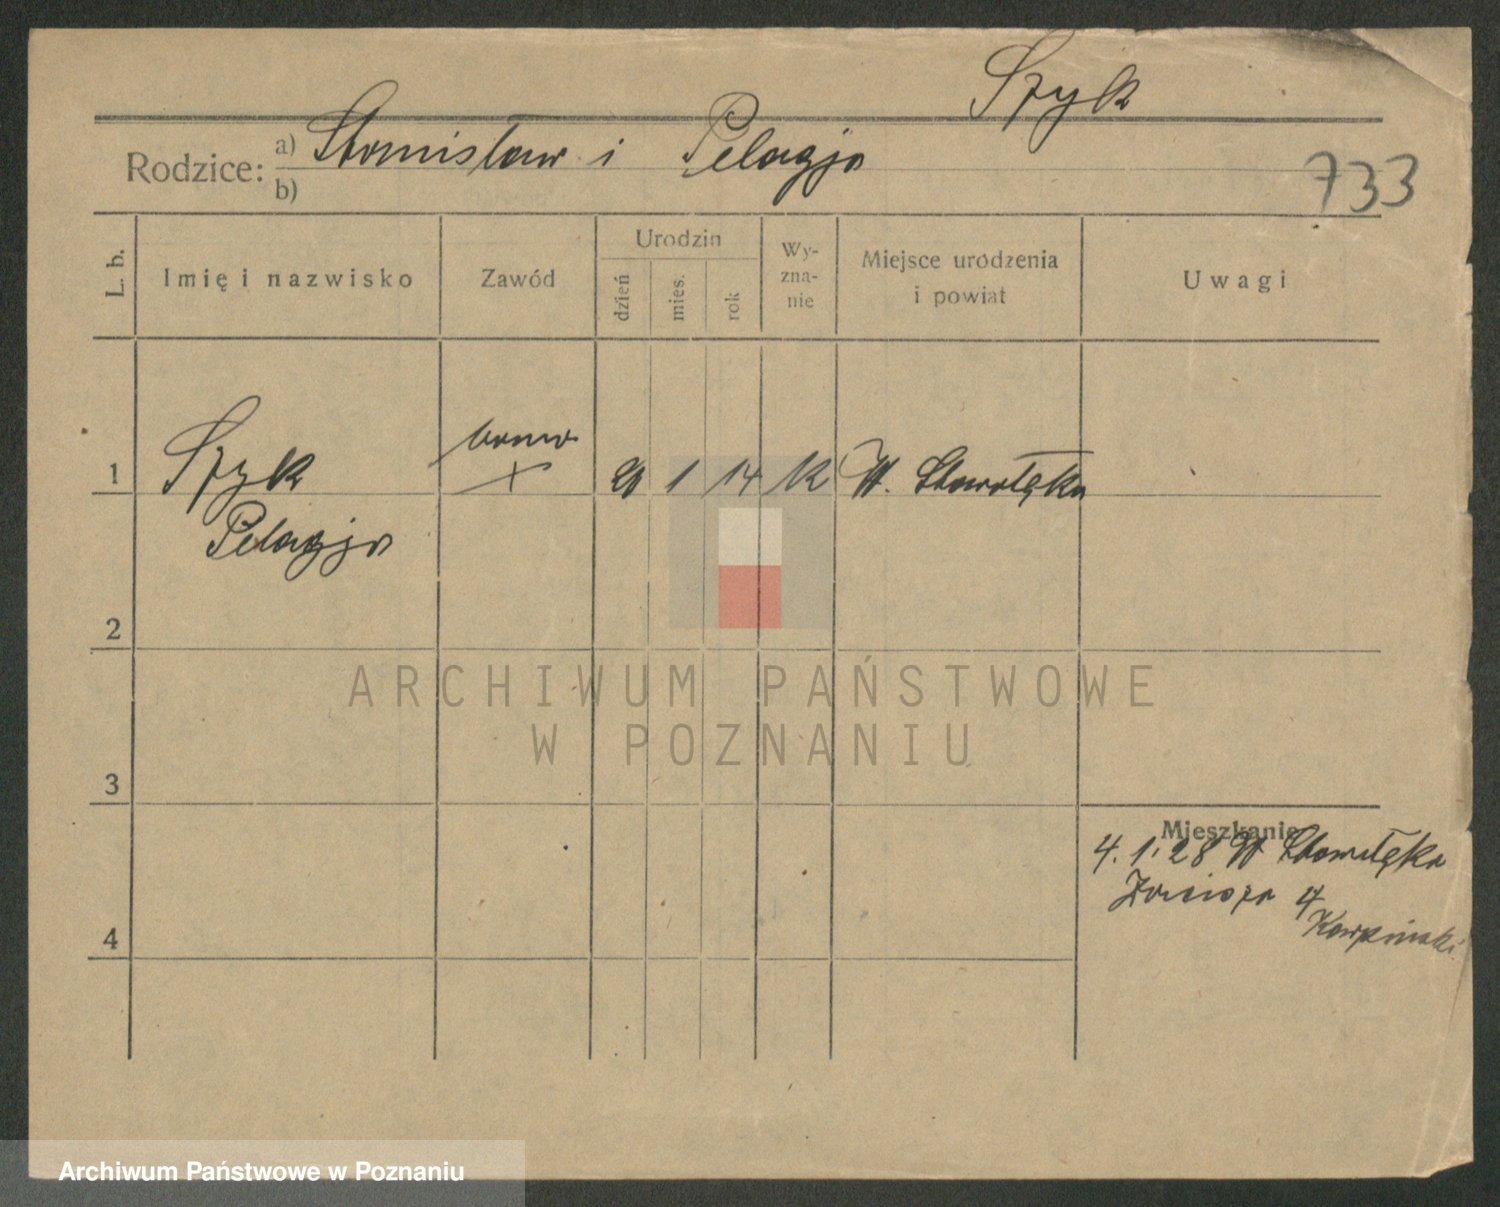 Szyk
Rodzice: a) Stanisław i Pelagja
b)
733
L. b.
Imię i nazwisko
Zawód
Urodzin
dzień
mies.
rok
Wy-
zna-
nie
Miejsce urodzenia
i powiat
Uwagi
1
Szyk
Pelagja
1 14 K W. Starołęka
2
3
4
Mieszkanie
4.1.28 W Starołęka
4
Karpiński
ARCHIWUM PAŃSTWOWE
W POZNANIU
Archiwum Państwowe w Poznaniu